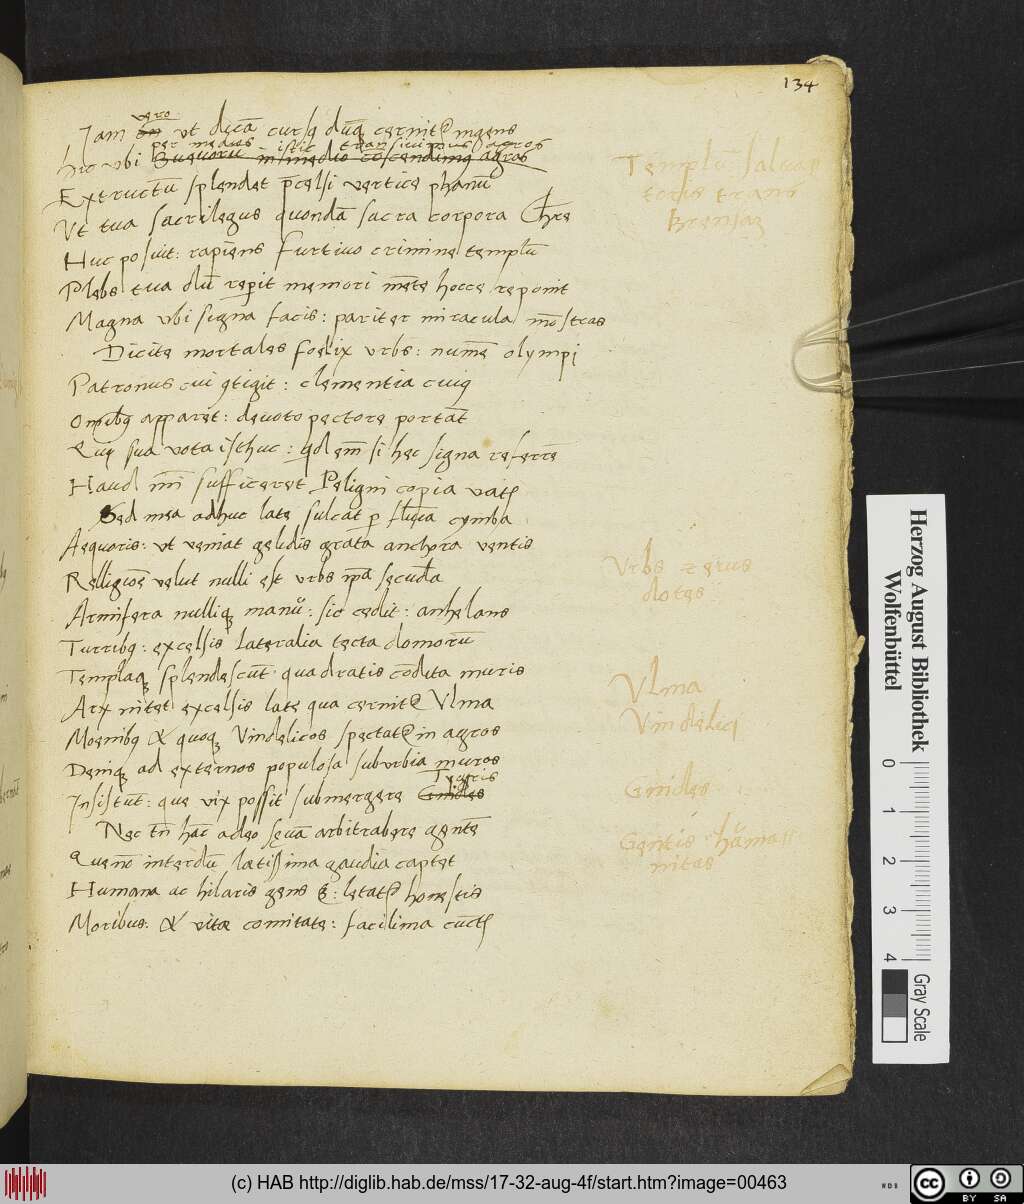 134
vero
Jam en ut dicā cursq dūq cernitr ingens
per medios istic transivimus agros
hic ubi in medio cōscendimq agros
Extructū splendet p̄celsi vertice phanū
Ut tua sacrilegus quondā sacra corpora Chre
Huc posuit: rapiens furtivo crimine templū
Plebs tua dū reperit memori mēte hocce reponit
Magna ubi signa facis: pariter miracula mōstras
Dicite mortales foelix urbs: numē olympi
Patronus cui ꝯtigit: clementia cuiq
Omibq apparet: devoto pectore portāt
Qui sua vota isthuc: qd em si hec signa referre
Haud mī sufficeret Peligni copia vatis
Sed mea adhuc late sulcat p flucta cymba
Aequoris: ut veniat gelidis grata anchora ventis
Relligiōe velut nulli est urbs ipa secūda
Armifera nulliq manu: sic cedit: anhelans
Turribq: excelsis lateralia tecta domorū
Templaq splendescūt quadratis cōduta muris
Arx nitet excelsis late qua cernitr Ulma
Moenibq & quoq Vindelicos spectatr in agros
Deniq ad externos populosa suburbia muros
Teucris
Insistūt: que vix possit submergere Gnides
Nec tn hāc adeo sevā arbitrabere gentē
Quenō interdū latissima gaudia captet
Humana ac hilaris gens ē: letatr honestis
Moribus: & vitæ comitate: facilima cūctis
Templū salvat
toris trans
Brensaz
Urbs zerus
dotes
Ulma
Vindeliq
Gnides
Gentis hūma
nitas
Herzog August Bibliothek
Wolfenbüttel
0 1 2 3 4
Gray Scale
(c) HAB http://diglib.hab.de/mss/17-32-aug-4f/start.htm?image=00463
WDB
cc
BY SA